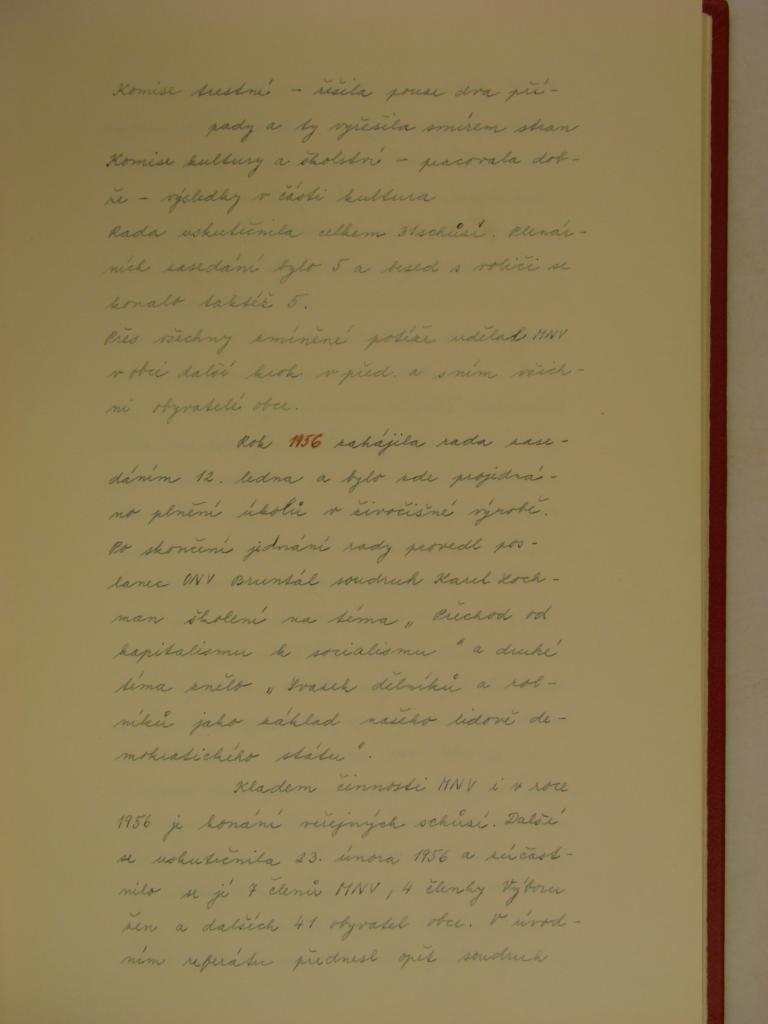 Komise trestné - řešila pouse dva pří-
pady a ty vyřešila smírem stran
Komise kultury a školství - pracovala dob-
ře - výsledky v části kultura
Rada uskutečnila celkem 31 schůsí. Plenár-
ních sasedání bylo 5 a besed s voliči se
konalo taktéž 5.
Přes všechny smíněné potíže udělal MNV
v obci další krok v před. a s ním všich-
ni obyvatelé obce.
Rok 1956 sahájila rada sase-
dáním 12. ledna a bylo sde projedná-
no plnění úkolů v živočišné výrobě.
Po skončení jednání rady provedl pos-
lanec ONV Bruntál soudruh Karel Hoch-
man školení na téma „ Přechod od
kapitalismu k socialismu " a druhé
téma snělo „ Svasek dělníků a rol-
níků jako sáklad našeho lidově de-
mokratického státu ".
Kladem činnosti MNV i v roce
1956 je konání veřejných schůsí. Další
se uskutečnila 23. února 1956 a súčast-
nilo se jí 7 členů MNV, 4 členky Výboru
žen a dalších 41 obyvatel obce. V úvod-
ním referátu přednesl opět soudruh